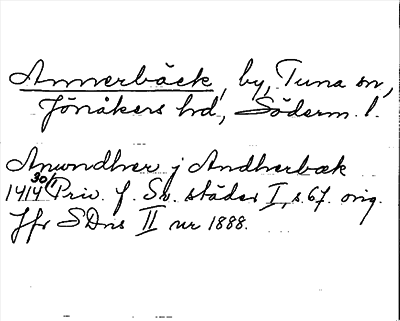 Annerbäck, by, Tuna sn,
Jönåkers hd, Söderm. l.
Anundher j Andherbæk
1414 30/1 Priv. f. Sv. städer I, s. 67. orig.
Jfr SDns II nr 1888.